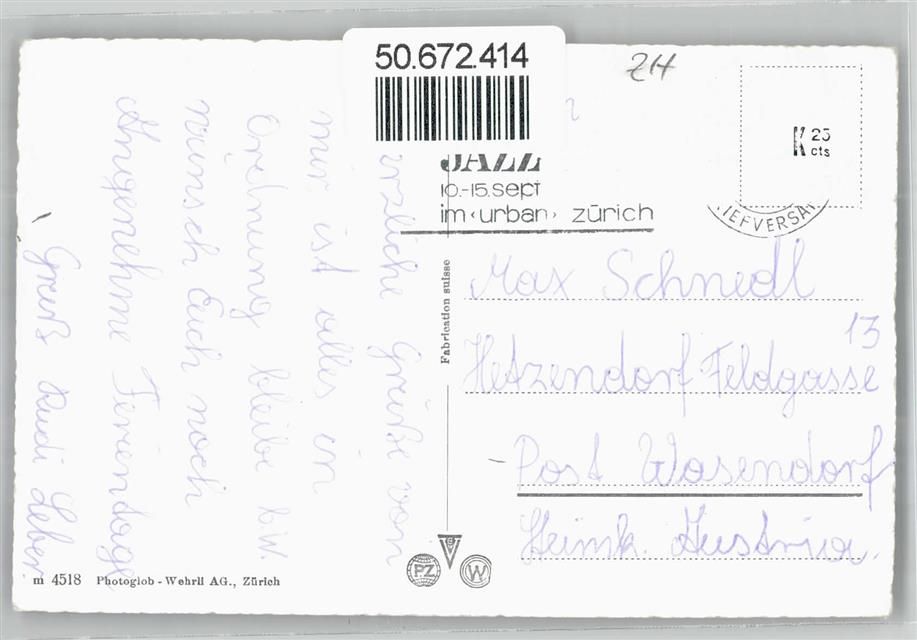 50.672.414
ZH
K 25 cts
JAZZ
10.-15.sept
im ‹urban› zürich
IEFVERSA
rzliche Grüße von
mir ist alles in
Ordnung bleibe b.W.
wünsch Euch noch
Angenehme Ferientage
Gruß Rudi Leber
Fabrication suisse
Max Schnedl
13
Hetzendorf Feldgasse
Post Wasendorf
Austria.
PZ
W
m 4518 Photoglob - Wehrli AG., Zürich